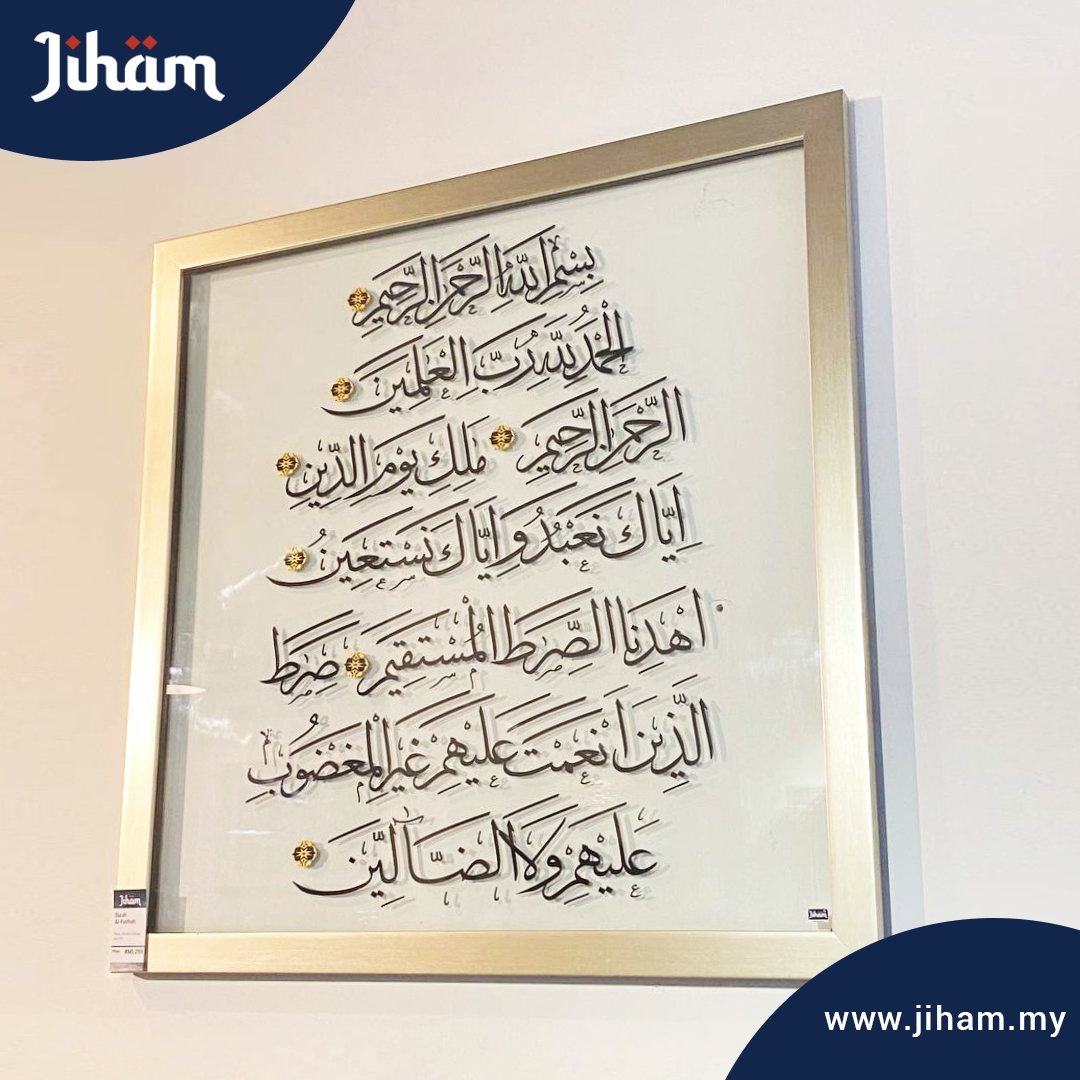 Jihäm
بِسْمِ اللّٰهِ الرَّحْمٰنِ الرَّحِيْمِ
الْحَمْدُ لِلّٰهِ رَبِّ الْعٰلَمِيْنَ
الرَّحْمٰنِ الرَّحِيْمِ مٰلِكِ يَوْمِ الدِّيْنِ
اِيَّاكَ نَعْبُدُ وَاِيَّاكَ نَسْتَعِيْنُ
اهْدِنَا الصِّرٰطَ الْمُسْتَقِيْمَ صِرٰطَ
الَّذِيْنَ اَنْعَمْتَ عَلَيْهِمْ غَيْرِ الْمَغْضُوْبِ
عَلَيْهِمْ وَلَا الضَّآلِّيْنَ
Jihäm
Jihäm
Surah
Al-Fatihah
www.jiham.my